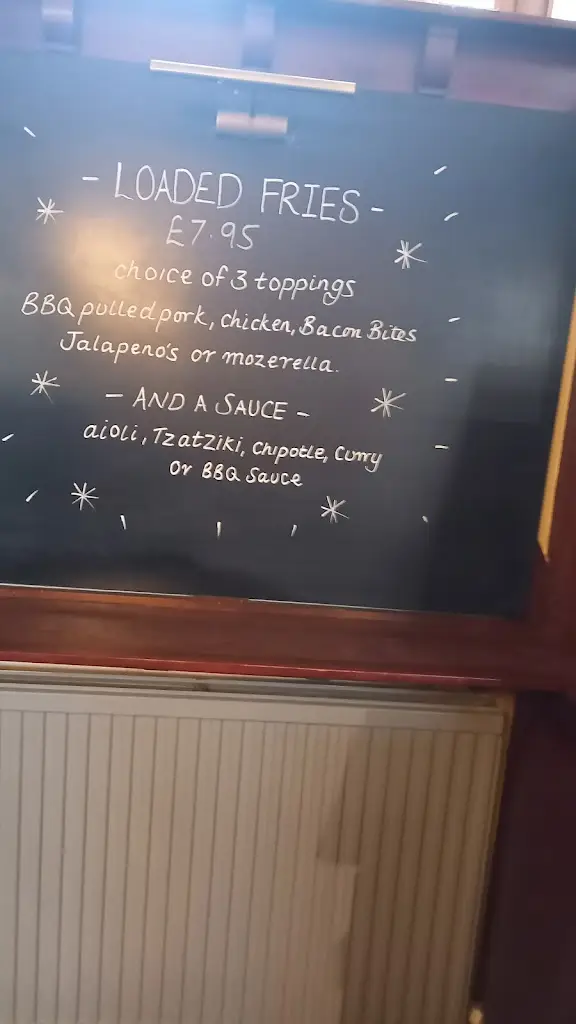 - LOADED FRIES -
£7.95
choice of 3 toppings
BBQ pulled pork, chicken, Bacon Bites
Jalapeno's or mozerella.
- AND A SAUCE -
aioli, Tzatziki, Chipotle, Curry
Or BBQ Sauce